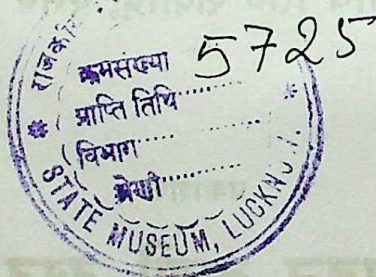 राजकी
क्रमसंख्या 5725
प्राप्ति तिथि
विभाग
श्रेणी
STATE MUSEUM, LUCKNOW.